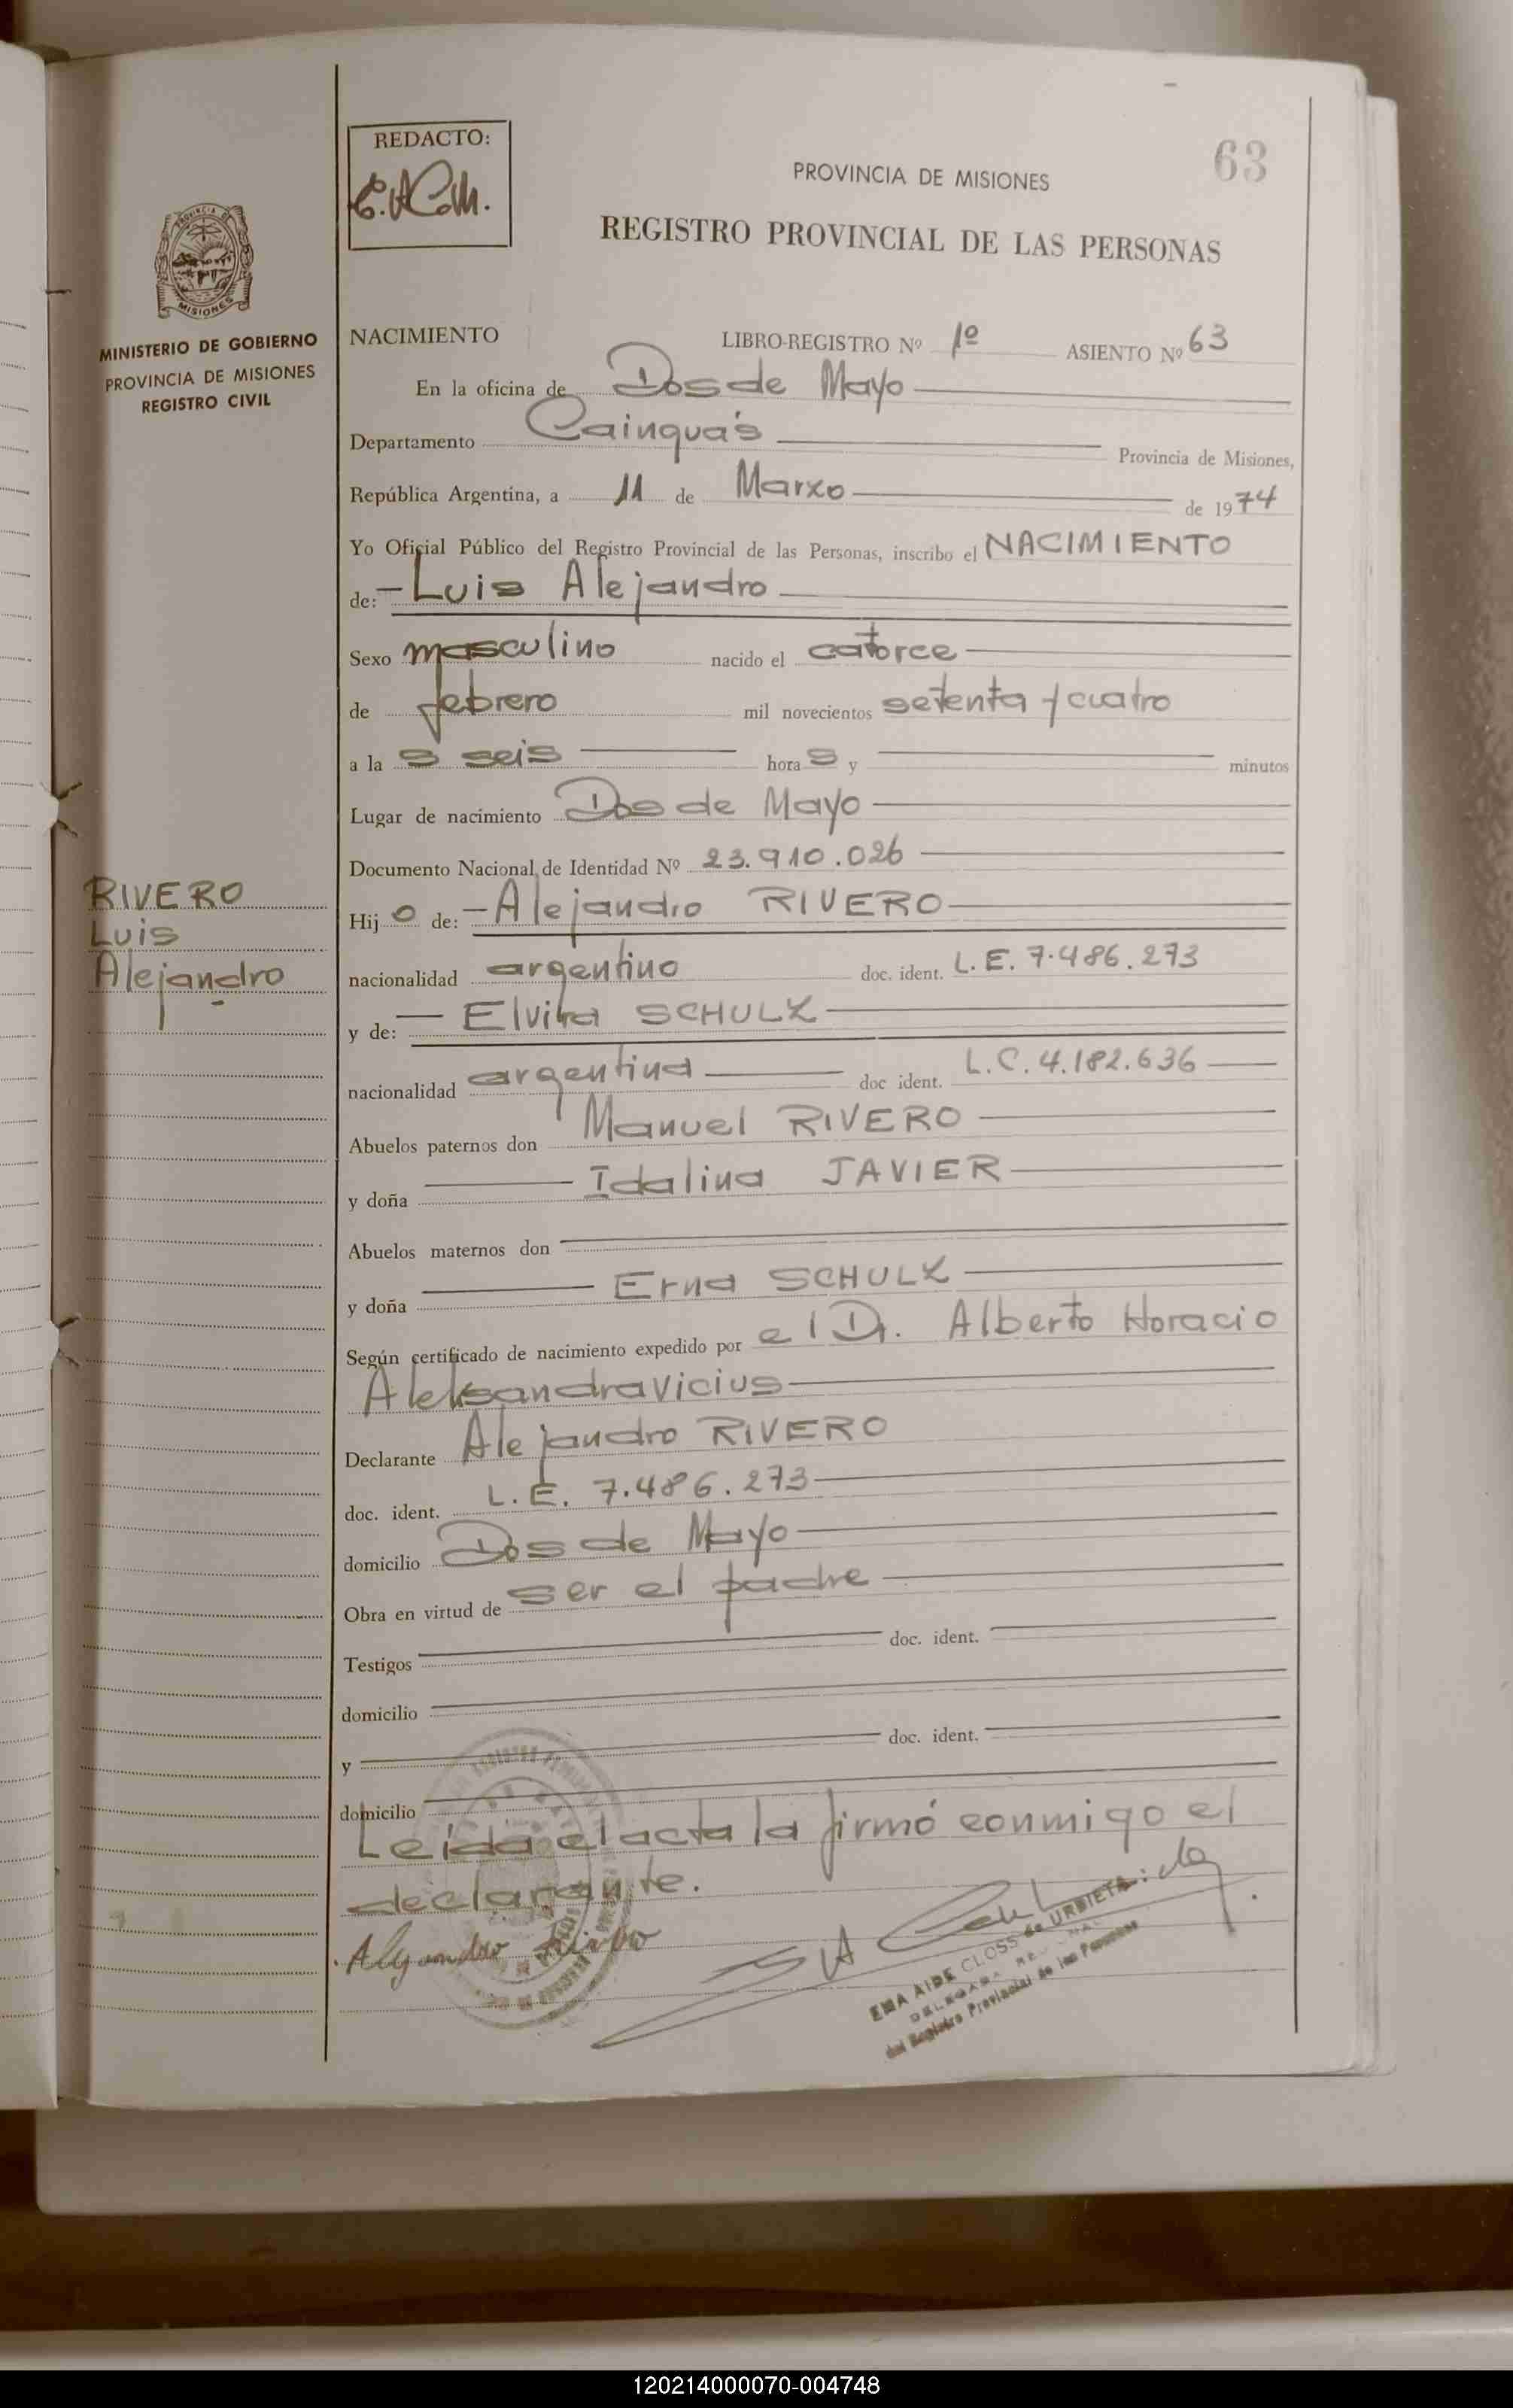 REDACTO:
63
PROVINCIA DE MISIONES
REGISTRO PROVINCIAL DE LAS PERSONAS
MISIONES
MINISTERIO DE GOBIERNO
PROVINCIA DE MISIONES
REGISTRO CIVIL
NACIMIENTO LIBRO-REGISTRO Nº 1º ASIENTO Nº 63
En la oficina de Dos de Mayo
Departamento Cainguás Provincia de Misiones,
República Argentina, a 11 de Marzo de 1974
Yo Oficial Público del Registro Provincial de las Personas, inscribo el NACIMIENTO
de: Luis Alejandro
Sexo masculino nacido el catorce
de febrero mil novecientos setenta y cuatro
a la s seis hora s y minutos
Lugar de nacimiento Dos de Mayo
Documento Nacional de Identidad Nº 23.910.026
RIVERO
Luis
Alejandro
Hij o de: Alejandro RIVERO
nacionalidad argentino doc. ident. L.E. 7.486.273
y de: Elvira SCHULZ
nacionalidad argentina doc ident. L.C. 4.182.636
Abuelos paternos don Manuel RIVERO
y doña Idalina JAVIER
Abuelos maternos don
y doña Erna SCHULZ
Según certificado de nacimiento expedido por el Dr. Alberto Horacio
Aleksandravicius
Declarante Alejandro RIVERO
doc. ident. L.E. 7.486.273
domicilio Dos de Mayo
Obra en virtud de ser el padre
Testigos doc. ident.
domicilio
y doc. ident.
domicilio
Leida el acta la firmó conmigo el
declarante.
Alejandro Rivero
EMA AIDE CLOSS de URBIETA
del Registro Provincial de las Personas
120214000070-004748